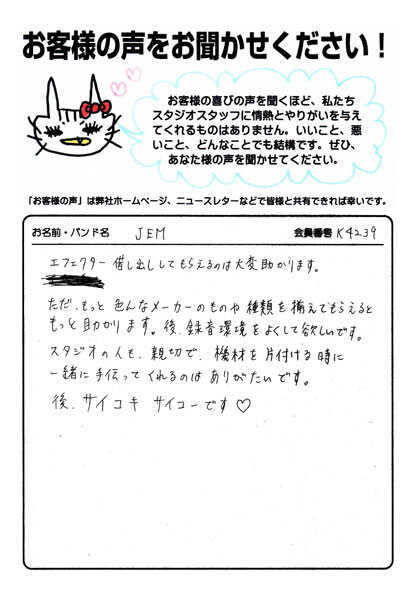 お客様の声をお聞かせください！
お客様の喜びの声を聞くほど、私たち
スタジオスタッフに情熱とやりがいを与え
てくれるものはありません。いいこと、悪
いこと、どんなことでも結構です。ぜひ、
あなた様の声を聞かせてください。
「お客様の声」は弊社ホームページ、ニュースレターなどで皆様と共有できれば幸いです。
お名前・バンド名 JEM 会員番号 K4239
エフェクター 借し出ししてもらえるのは大変助かります。
ただ、もっと 色んなメーカーのものや 種類を揃えてもらえると
もっと 助かります。後、録音環境をよくして欲しいです。
スタジオの人も、親切で、機材を片付ける時に
一緒に手伝ってくれるのは ありがたいです。
後、サイコキ サイコーです♡